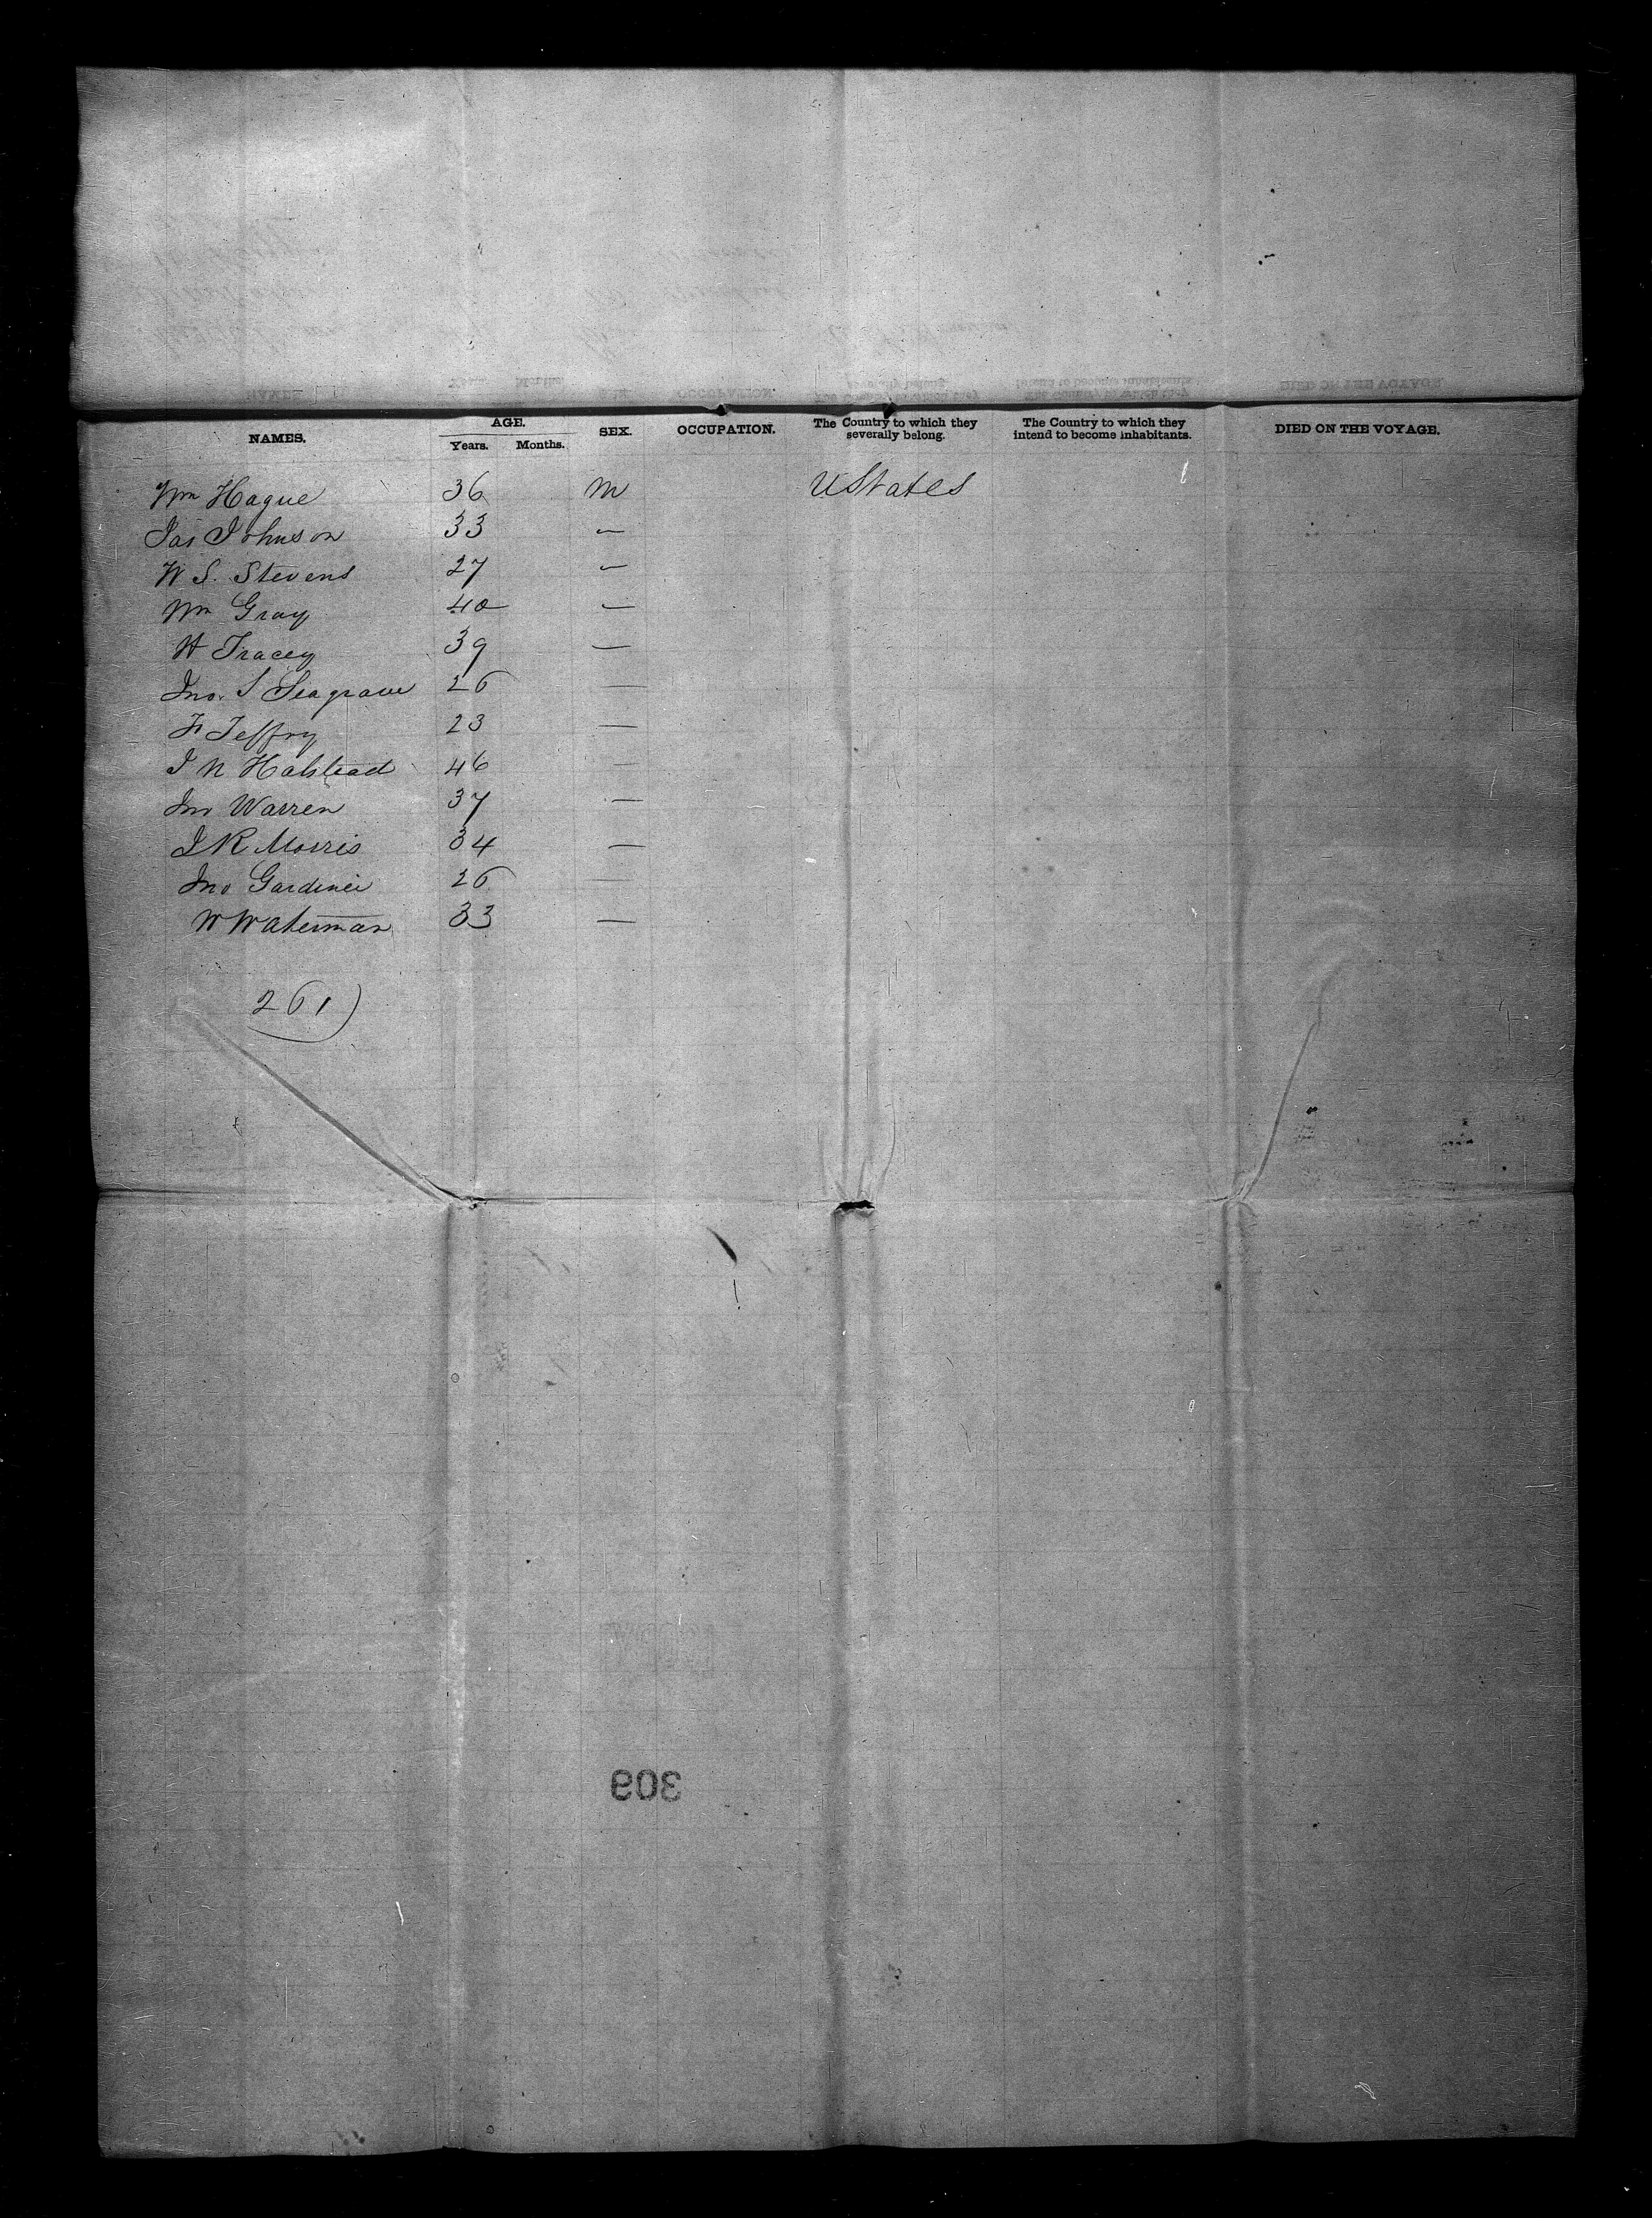 NAMES. AGE. Years. Months. SEX. OCCUPATION. The Country to which they severally belong. The Country to which they intend to become inhabitants. DIED ON THE VOYAGE.
Wm Hague 36 m UStates
Jas Johnson 33 —
W S. Stevens 27 —
Wm Gray 40 —
H Tracey 39 —
Jno. S Seagrave 26 —
F Jeffry 23 —
J N Halstead 46 —
Jno Warren 37 —
J R Morris 34 —
Jno Gardiner 26 —
W Waterman 33 —
261)
309